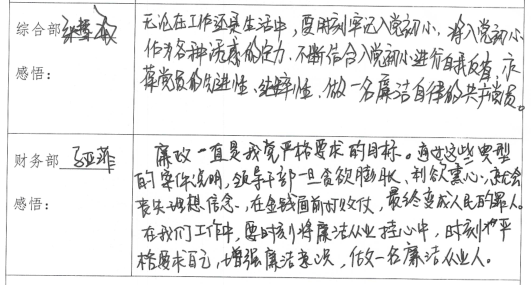 综合部
感悟：
无论在工作还是生活中，要时刻牢记入党初心，将入党初心
作为各种诱惑的定力，不断结合入党初心进行自我反省，永
葆党员的先进性、纯粹性，做一名廉洁自律的共产党员。
财务部
感悟：
廉政一直是我党严格要求的目标。通过这些典型
的案件说明，领导干部一旦贪欲膨胀、利欲熏心，就会
丧失理想信念，在金钱面前付收付，最终变成人民的罪人。
在我们工作中，要时刻将廉洁从业挂心中，时刻严
格要求自己，增强廉洁意识，做一名廉洁从业人。